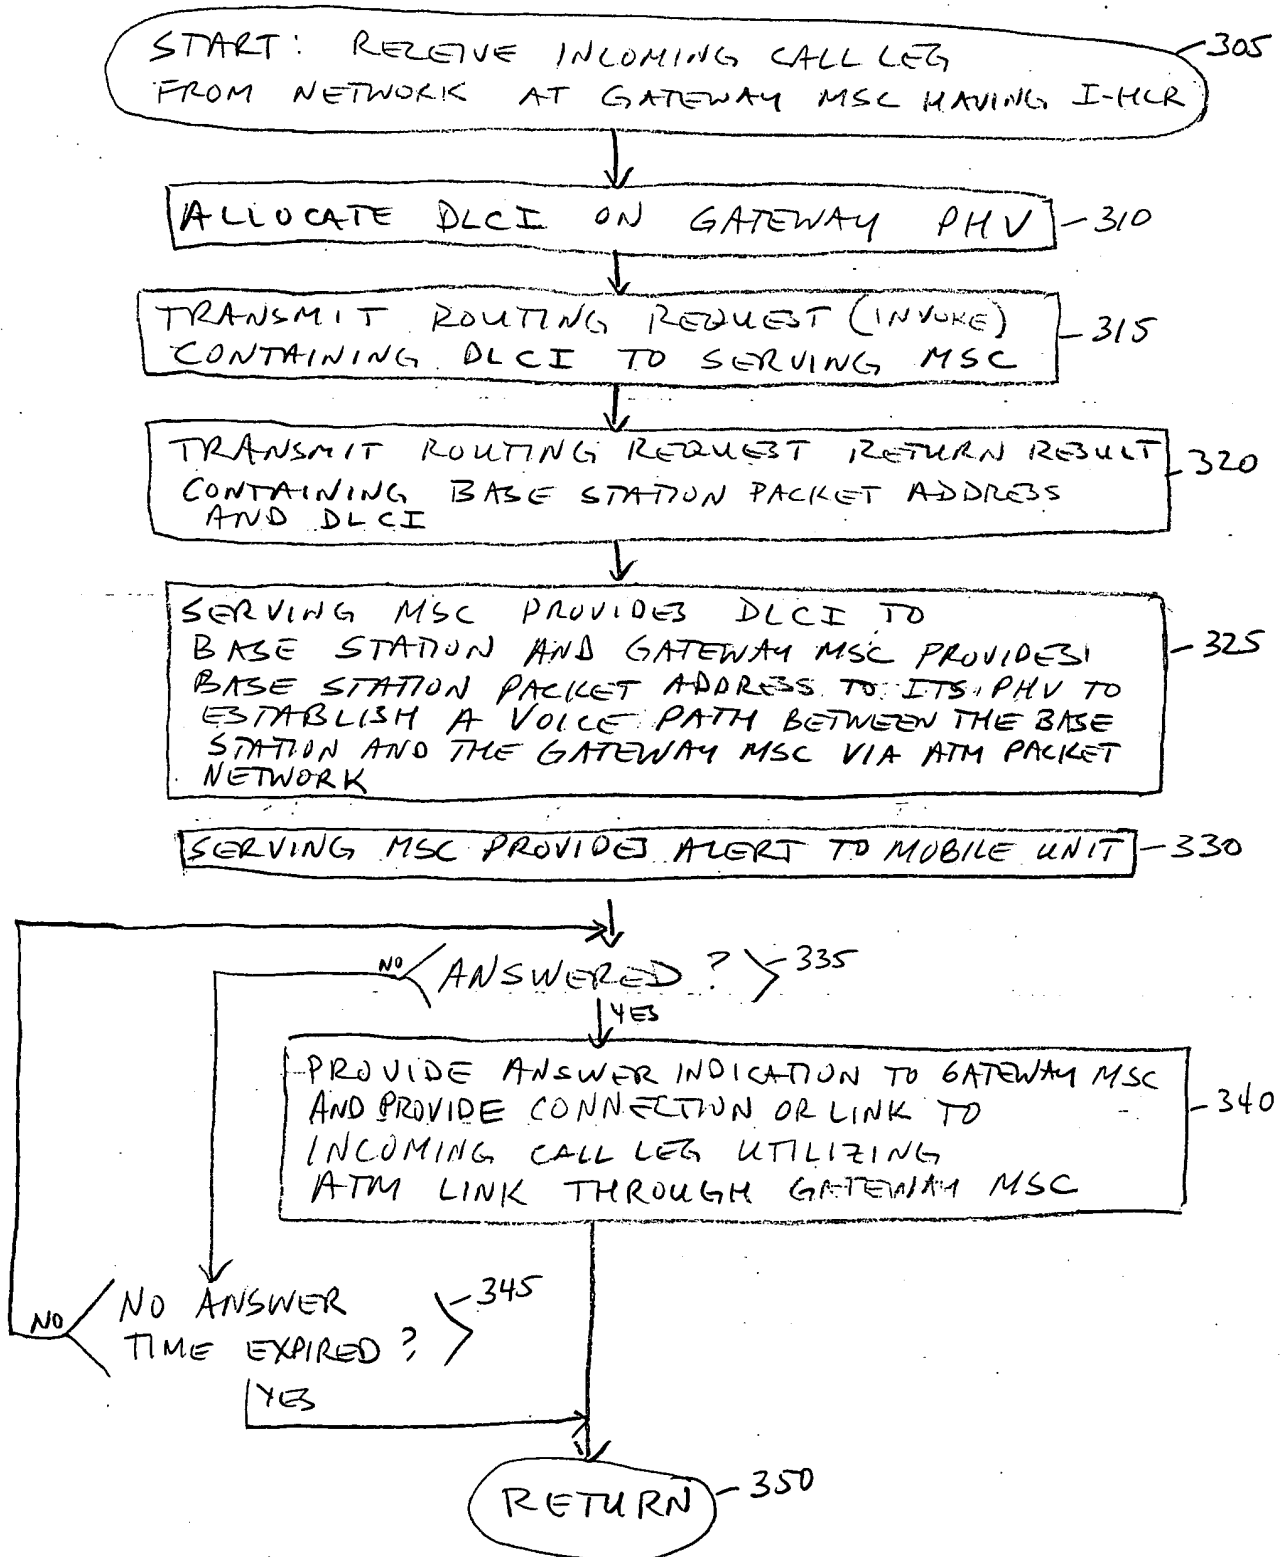 START: RECEIVE INCOMING CALL LEG
FROM NETWORK AT GATEWAY MSC HAVING I-HLR
305
ALLOCATE DLCI ON GATEWAY PHV
310
TRANSMIT ROUTING REQUEST (INVOKE)
CONTAINING DLCI TO SERVING MSC
315
TRANSMIT ROUTING REQUEST RETURN RESULT
CONTAINING BASE STATION PACKET ADDRESS
AND DLCI
320
SERVING MSC PROVIDES DLCI TO
BASE STATION AND GATEWAY MSC PROVIDES
BASE STATION PACKET ADDRESS TO ITS PHV TO
ESTABLISH A VOICE PATH BETWEEN THE BASE
STATION AND THE GATEWAY MSC VIA ATM PACKET
NETWORK
325
SERVING MSC PROVIDES ALERT TO MOBILE UNIT
330
NO
ANSWERED?
335
YES
PROVIDE ANSWER INDICATION TO GATEWAY MSC
AND PROVIDE CONNECTION OR LINK TO
INCOMING CALL LEG UTILIZING
ATM LINK THROUGH GATEWAY MSC
340
NO
NO ANSWER
TIME EXPIRED?
345
YES
RETURN
350